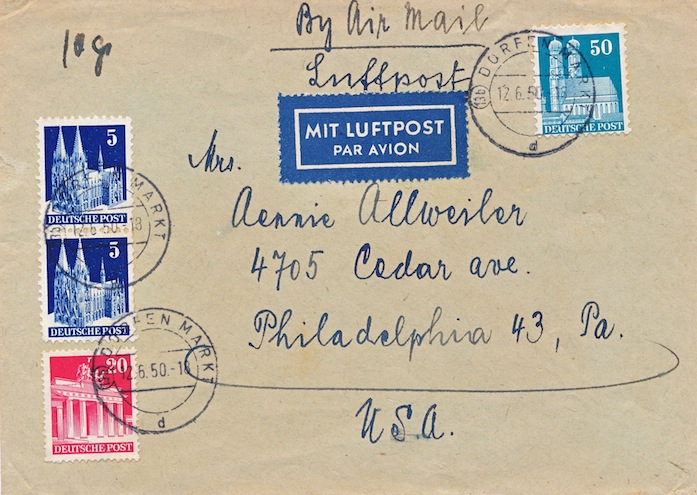 By Air Mail
10 g
Luftpost
50
DEUTSCHE POST
DORFEN MARKT
12.6.50.-18
d
MIT LUFTPOST
PAR AVION
5
DEUTSCHE POST
5
DEUTSCHE POST
MARKT
12.6.50.-18
Mrs.
Aennie Allweiler
4705 Cedar ave.
Philadelphia 43, Pa.
U.S.A.
20
DEUTSCHE POST
DORFEN MARKT
12.6.50.-18
d